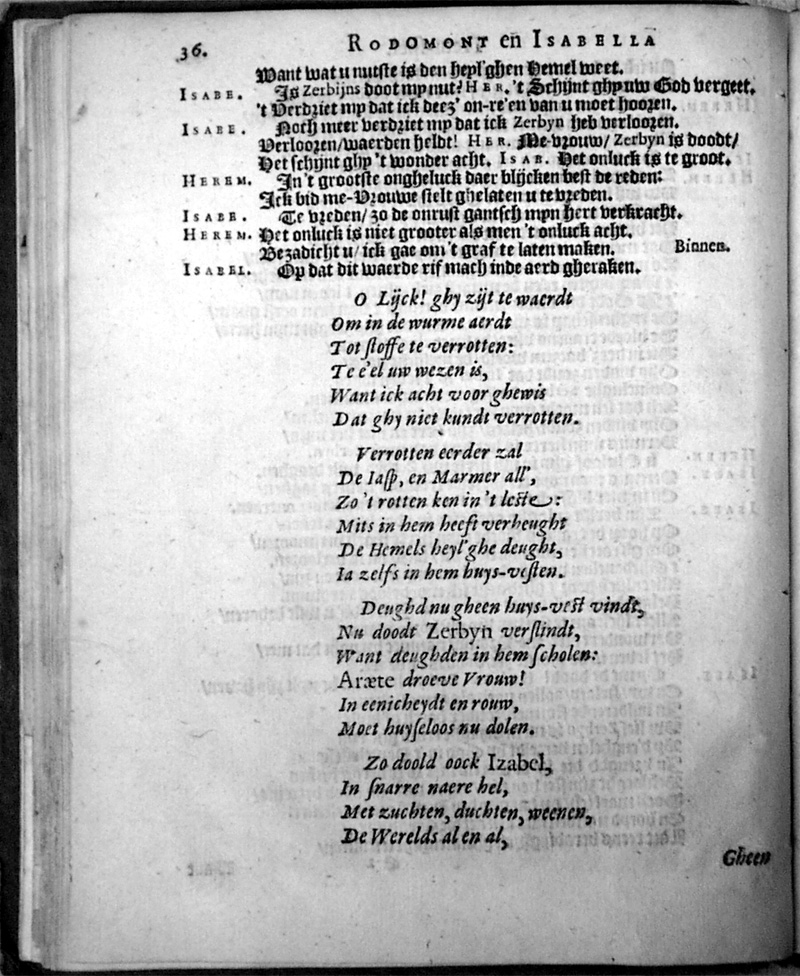 36. RODOMONT en ISABELLA
Want wat u nutste is den heyl'ghen Hemel weet.
ISABE. Is Zerbijns doot my nut? HER. 't Schijnt ghy uw God vergeet.
't Verdriet my dat ick deez' on-re'en van u moet hooren.
ISABE. Noch meer verdriet my dat ick Zerbyn heb verlooren.
Verlooren/waerden heldt! HER. Me-vrouw/ Zerbyn is doodt/
Het schijnt ghy 't wonder acht. ISAB. Het onluck is te groot.
HEREM. In 't grootste ongheluck daer blijcken best de reden:
Ick bid me-Vrouwe stelt ghelaten u te vreden.
ISABE. Te vreden/ zo de onrust gantsch mijn hert verkracht.
HEREM. Het onluck is niet grooter als men 't onluck acht.
Bezadicht u/ ick gae om 't graf te laten maken. Binnen.
ISABEL. Op dat dit waerde rif mach inde aerd gheraken.
O Lijck! ghy zijt te waerdt
Om in de wurme aerdt
Tot stoffe te verrotten:
Te e'el uw wezen is,
Want ick acht voor ghewis
Dat ghy niet kundt verrotten.
Verrotten eerder zal
De Iasp, en Marmer all',
Zo 't rotten ken in 't leste:
Mits in hem heeft verheught
De Hemels heyl'ghe deught,
Ia zelfs in hem huys-vesten.
Deughd nu gheen huys-vest vindt,
Nu doodt Zerbyn verslindt,
Want deughden in hem scholen:
Aræte droeve Vrouw!
In eenicheydt en rouw,
Moet huyseloos nu dolen.
Zo doold oock Izabel,
In snarre naere hel,
Met zuchten, duchten, weenen,
De Werelds al en al,
Gheen